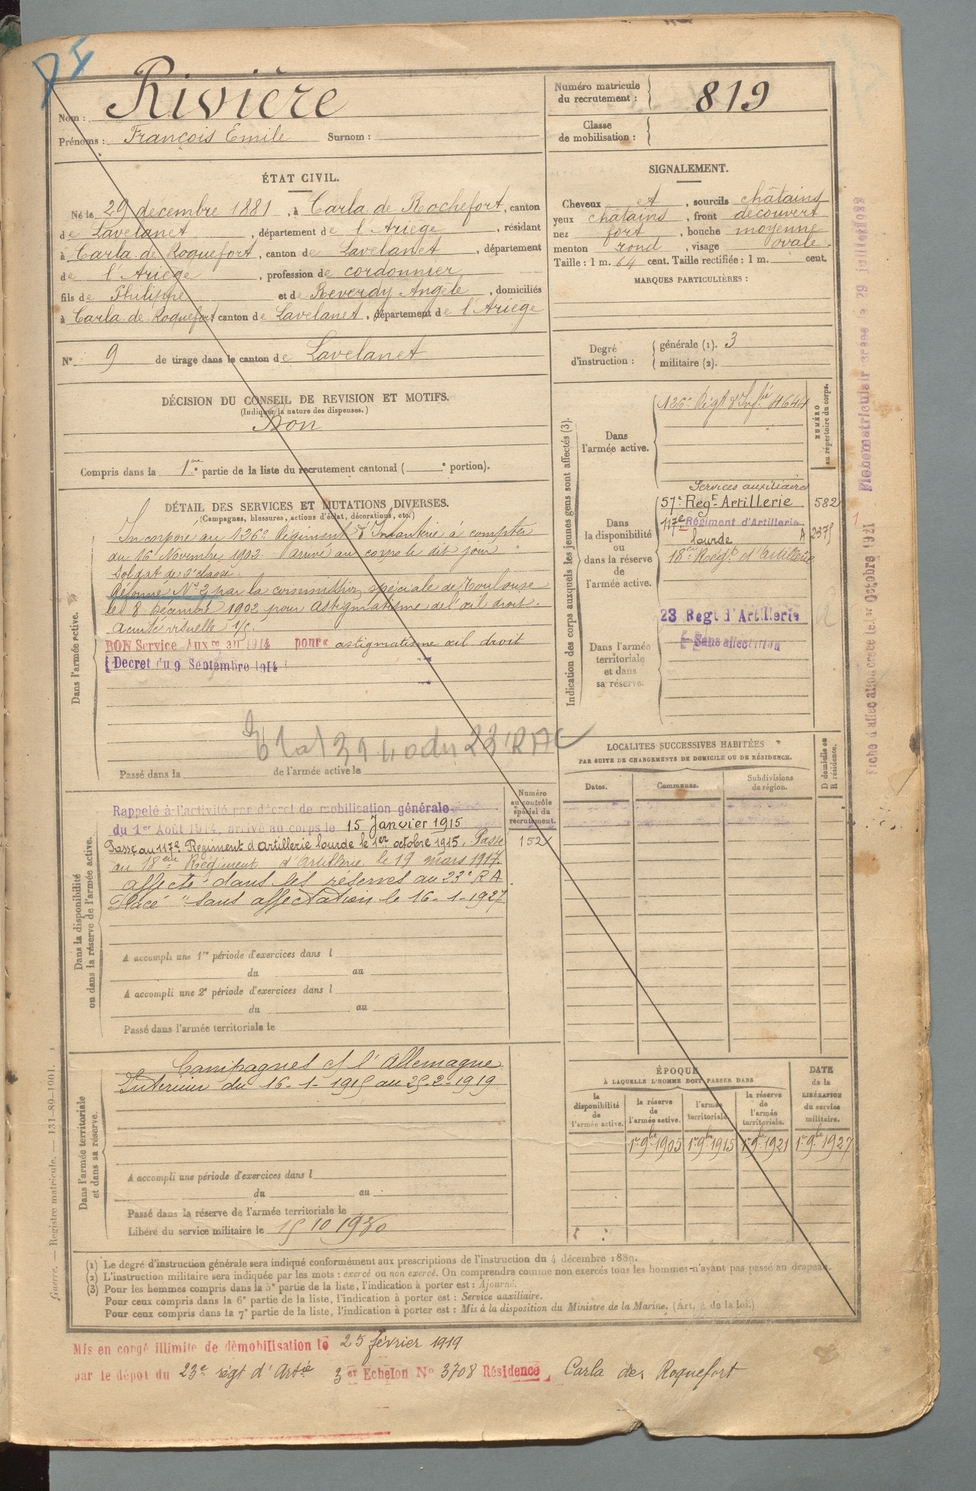 Rivière
Nom :
Prénoms : François Emile Surnom :
Numéro matricule du recrutement : 819
Classe de mobilisation :
ÉTAT CIVIL.
Né le 29 décembre 1881, à Carla de Rochefort, canton
de Lavelanet, département de l'Ariège, résidant
à Carla de Roquefort, canton de Lavelanet, département
de l'Ariège, profession de cordonnier,
fils de Philippe et de Reverdy Angèle, domiciliés
à Carla de Roquefort canton de Lavelanet, département de l'Ariège
N° 9 de tirage dans le canton de Lavelanet
SIGNALEMENT.
Cheveux, sourcils châtains
yeux châtains, front découvert
nez fort, bouche moyenne
menton rond, visage ovale
Taille : 1 m. 64 cent. Taille rectifiée : 1 m. cent.
MARQUES PARTICULIÈRES :
Degré d'instruction : générale (1). 3
militaire (2).
DÉCISION DU CONSEIL DE REVISION ET MOTIFS.
(Indiquer la nature des dispenses.)
Bon
Compris dans la 1re partie de la liste du recrutement cantonal ( e portion).
DÉTAIL DES SERVICES ET MUTATIONS DIVERSES.
(Campagnes, blessures, actions d'éclat, décorations, etc.)
Dans l'armée active.
Incorporé au 126e Régiment d'Infanterie à compter
du 16 Novembre 1902 Arrivé au corps le dit jour
Soldat de 2e classe.
Réformé N° 2 par la commission spéciale de Toulouse
le 8 décembre 1902 pour astigmatisme de l'œil droit.
Acuité visuelle
BON Service Auxre en 1914 pour astigmatisme œil droit
Décret du 9 Septembre 1914
Passé dans la de l'armée active le
Indication des corps auxquels les jeunes gens sont affectés (3).
NUMÉRO au répertoire du corps.
Dans l'armée active.
126e Régt d'Infie
Dans la disponibilité ou dans la réserve de l'armée active.
Services auxiliaires
57e Régt Artillerie 582
117e Régiment d'Artillerie
lourde
18e Régt d'artillerie
Dans l'armée territoriale et dans sa réserve.
23 Regt d'Artillerie
Sans affectation
LOCALITÉS SUCCESSIVES HABITÉES
PAR SUITE DE CHANGEMENTS DE DOMICILE OU DE RÉSIDENCE.
Dates. Communes. Subdivisions de région.
D domicile ou R résidence.
Dans la disponibilité ou dans la réserve de l'armée active.
Numéro au contrôle spécial du recrutement.
Rappelé à l'activité par décret de mobilisation générale
du 1er Août 1914, arrivé au corps le 15 Janvier 1915
Passé au 117e Régiment d'Artillerie lourde le 1er octobre 1915. Passé
au 18ème Régiment d'Artillerie le 19 mars 1917.
affecté dans les réserves au 23e R A
Placé "sans affectation le 16-1-1927
A accompli une 1re période d'exercices dans l
du au
A accompli une 2e période d'exercices dans l
du au
Passé dans l'armée territoriale le
Dans l'armée territoriale et dans sa réserve.
Campagnes ct l'Allemagne
Intérieur du 16-1-1915 au 25-2-1919
A accompli une période d'exercices dans l
du au
Passé dans la réserve de l'armée territoriale le
Libéré du service militaire le
ÉPOQUE
À LAQUELLE L'HOMME DOIT PASSER DANS
DATE de la LIBÉRATION du service militaire.
la disponibilité de l'armée active. la réserve de l'armée active. l'armée territoriale. la réserve de l'armée territoriale.
1er 9bre 1905 1er 9bre 1915 1er 9bre 1921 1er 9bre 1927
(1) Le degré d'instruction générale sera indiqué conformément aux prescriptions de l'instruction du 4 décembre 1889.
(2) L'instruction militaire sera indiquée par les mots : exercé ou non exercé. On comprendra comme non exercés tous les hommes n'ayant pas passé au drapeau.
(3) Pour les hommes compris dans la 5e partie de la liste, l'indication à porter est : Ajourné.
Pour ceux compris dans la 6e partie de la liste, l'indication à porter est : Service auxiliaire.
Pour ceux compris dans la 7e partie de la liste, l'indication à porter est : Mis à la disposition du Ministre de la Marine,
Mis en congé illimité de démobilisation le 25 février 1919
par le dépôt du 23e régt d'Artie 3 Echelon N° 3708 Résidence Carla de Roquefort
Guerre. — Registre matricule. — 131-89-1901.
Fiche d'affectation créée le 1er Octobre 1921